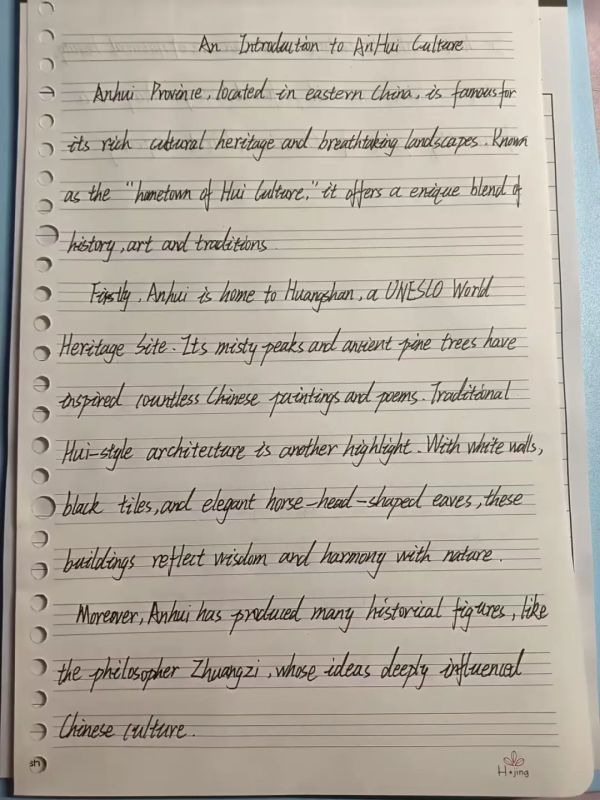 An Introduction to AnHui Culture
Anhui Province, located in eastern China, is famous for
its rich cultural heritage and breathtaking landscapes. Known
as the "hometown of Hui Culture," it offers a enique blend of
history, art and traditions.
Firstly, Anhui is home to Huangshan, a UNESCO World
Heritage Site. Its misty peaks and ancient pine trees have
inspired countless Chinese paintings and poems. Traditional
Hui-style architecture is another highlight. With white walls,
black tiles, and elegant horse-head-shaped eaves, these
buildings reflect wisdom and harmony with nature.
Moreover, Anhui has produced many historical figures, like
the philosopher Zhuangzi, whose ideas deeply influenced
Chinese culture.
sh
H·jing